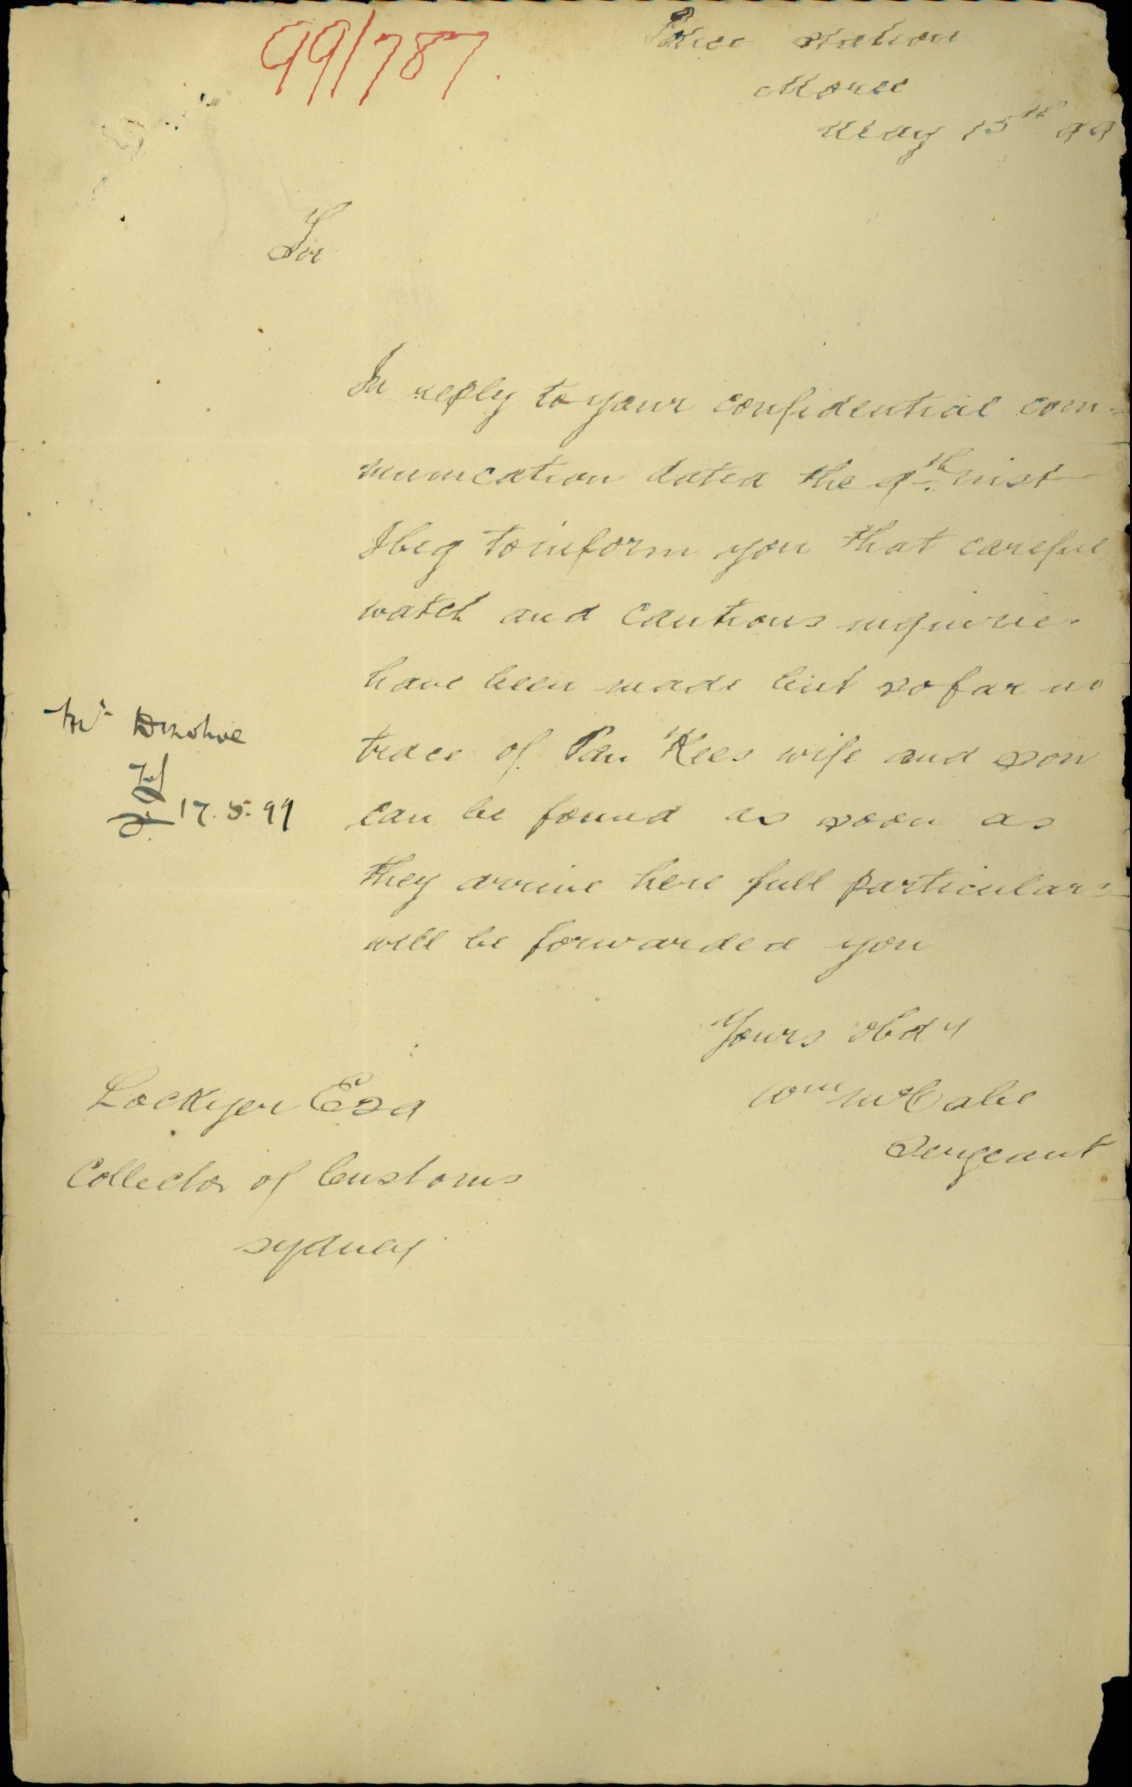 99/787.
Police Station
Moree
May 15th 99
Sir
In reply to your confidential com-
munication dated the 9th inst
I beg to inform you that careful
watch and cautious inquiries
have been made but so far no
trace of Pan Kees wife and son
can be found as soon as
they arrive here full particulars
will be forwarded you
Mr Donohoe
17.5.99
Yours obdy
Wm McCabe
Sergeant
Lockyer Esq
Collector of Customs
Sydney